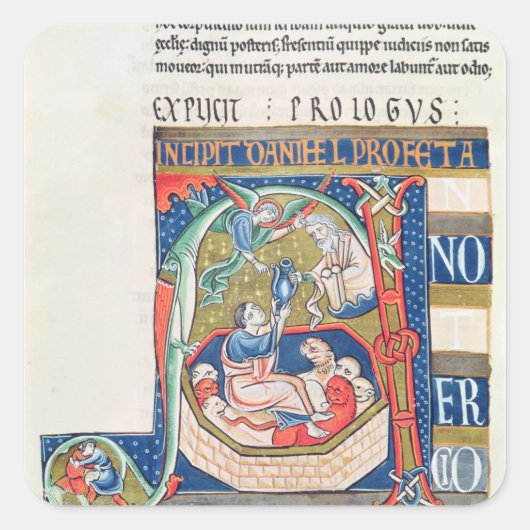 eccliẹ: dignū posteris; Presentiū quippe iudiciis non satis
moveor: qui in utrāq; parte aut amore labuntur aut odio;
EXPLICIT : PROLOGVS :
INCIPIT DANIHEL PROFETA
N
NO
T
ER
CIO